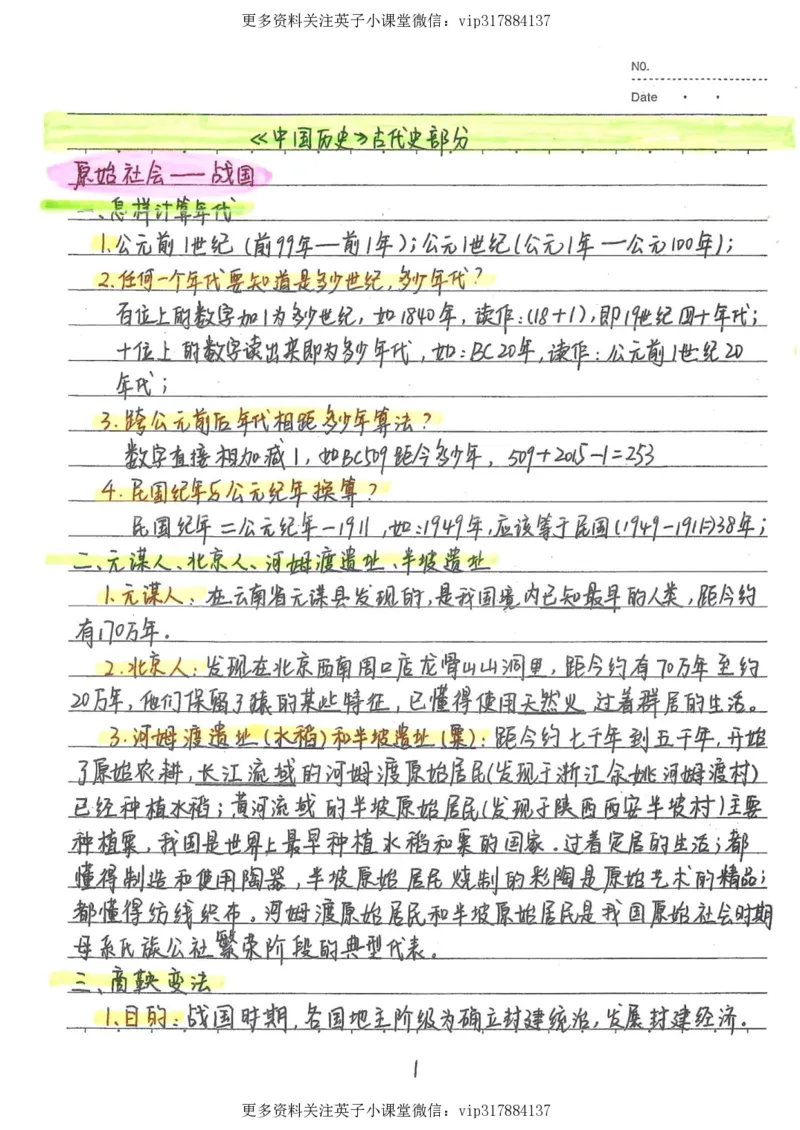 更多资料关注英子小课堂微信：vip317884137
NO.
Date
《中国历史》古代史部分
原始社会——战国
一、怎样计算年代
1.公元前1世纪（前99年—前1年）；公元1世纪（公元1年—公元100年）；
2.任何一个年代要知道是多少世纪，多少年代？
百位上的数字加1为多少世纪，如1840年，读作：(18+1)，即19世纪四十年代；
十位上的数字读出来即为多少年代，如：BC20年，读作：公元前1世纪20
年代；
3.跨公元前后年代相距多少年算法？
数字直接相加减1，如BC509距今多少年，509+2015-1=253
4.民国纪年与公元纪年换算？
民国纪年=公元纪年-1911，如：1949年，应该等于民国(1949-1911=)38年；
二、元谋人、北京人、河姆渡遗址、半坡遗址
1.元谋人：在云南省元谋县发现的，是我国境内已知最早的人类，距今约
有170万年。
2.北京人：发现在北京西南周口店龙骨山山洞里，距今约有70万年至约
20万年，他们保留了猿的某些特征，已懂得使用天然火 过着群居的生活。
3.河姆渡遗址（水稻）和半坡遗址（粟）：距今约七千年到五千年，开始
了原始农耕，长江流域的河姆渡原始居民（发现于浙江余姚河姆渡村）
已经种植水稻；黄河流域的半坡原始居民（发现于陕西西安半坡村）主要
种植粟，我国是世界上最早种植水稻和粟的国家．过着定居的生活；都
懂得制造和使用陶器，半坡原始居民烧制的彩陶是原始艺术的精品；
都懂得纺线织布。河姆渡原始居民和半坡原始居民是我国原始社会时期
母系氏族公社繁荣阶段的典型代表。
三、商鞅变法
1.目的：战国时期，各国地主阶级为确立封建统治，发展封建经济。
1
更多资料关注英子小课堂微信：vip317884137